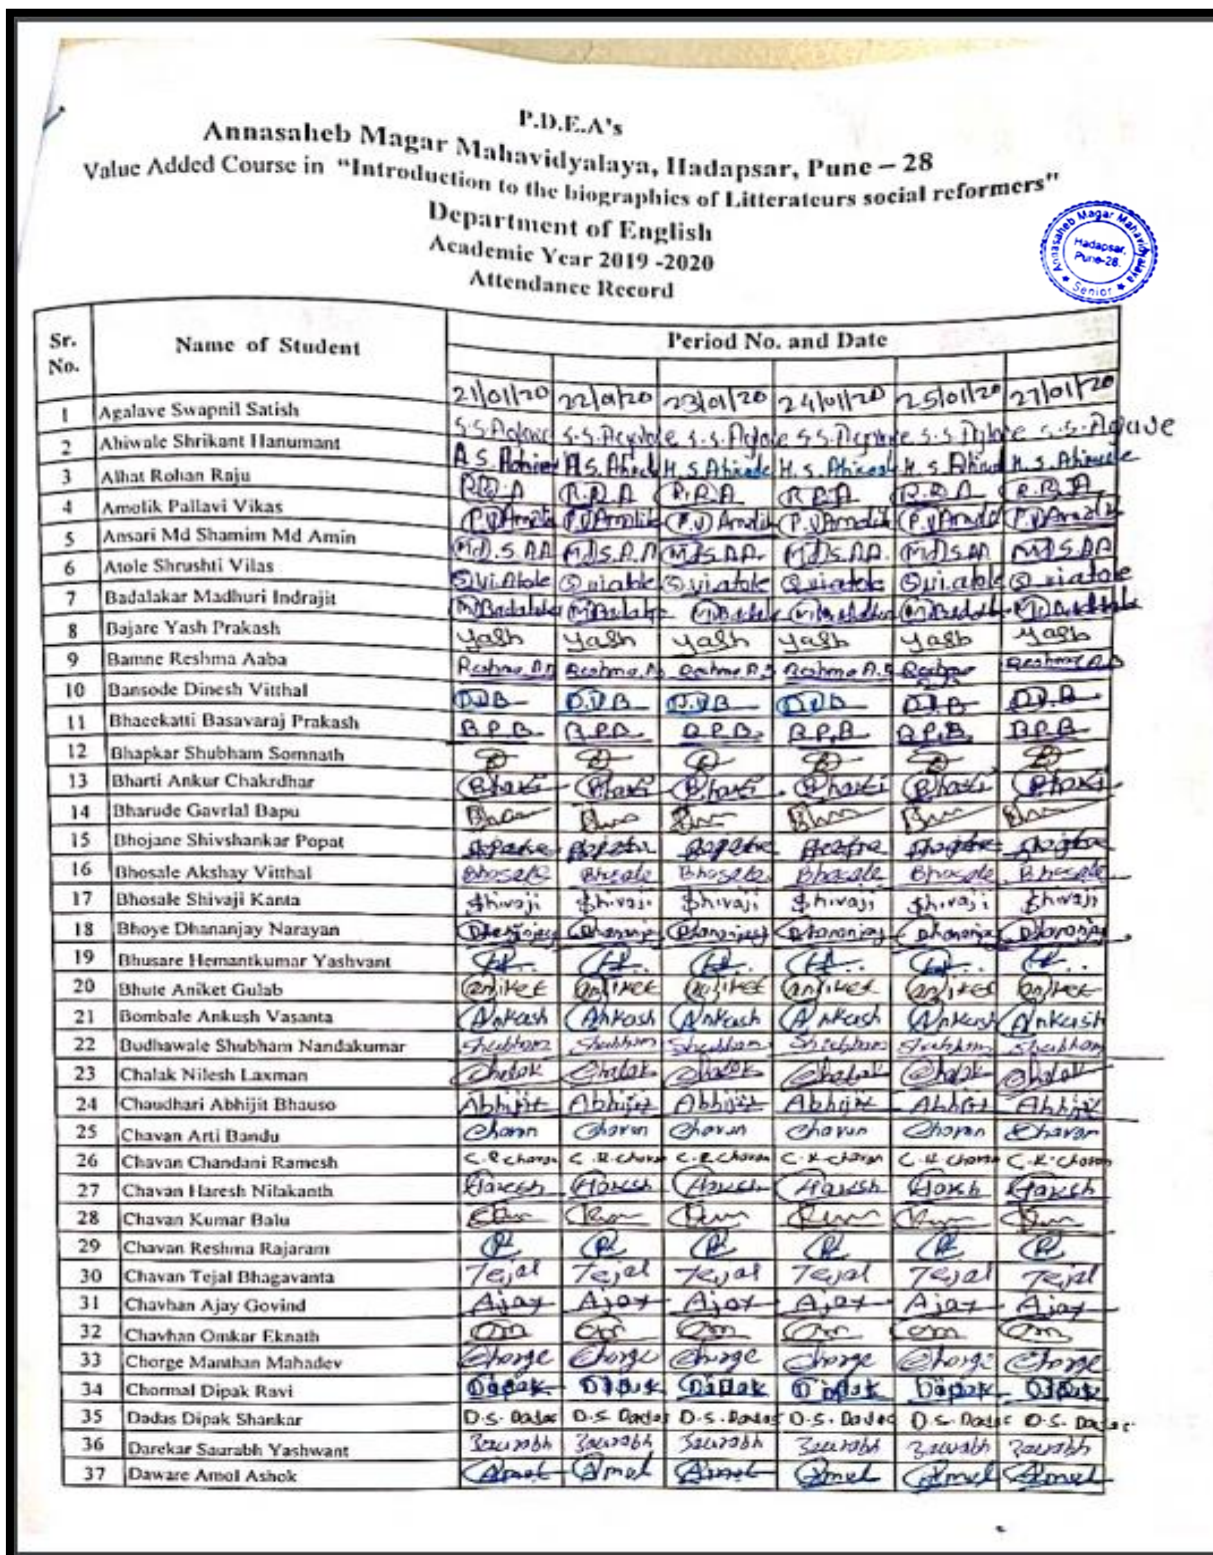 P.D.E.A's
Annasaheb Magar Mahavidyalaya, Hadapsar, Pune – 28
Value Added Course in "Introduction to the biographies of Litterateurs social reformers"
Department of English
Academic Year 2019 -2020
Attendance Record
Annasaheb Magar Mahavidyalaya
Hadapsar, Pune-28.
★ Senior ★
Sr. No. Name of Student Period No. and Date
21/01/20 22/01/20 23/01/20 24/01/20 25/01/20 27/01/20
1 Agalave Swapnil Satish
2 Ahiwale Shrikant Hanumant
3 Alhat Rohan Raju
4 Amolik Pallavi Vikas
5 Ansari Md Shamim Md Amin
6 Atole Shrushti Vilas
7 Badalakar Madhuri Indrajit
8 Bajare Yash Prakash Yash Yash Yash Yash Yash Yash
9 Bamne Reshma Aaba
10 Bansode Dinesh Vitthal D.V.B D.V.B D.V.B D.V.B D.V.B D.V.B
11 Bhaeekatti Basavaraj Prakash B.P.B B.P.B B.P.B B.P.B B.P.B B.P.B
12 Bhapkar Shubham Somnath
13 Bharti Ankur Chakrdhar Bharti Bharti Bharti Bharti Bharti Bharti
14 Bharude Gavrlal Bapu
15 Bhojane Shivshankar Popat
16 Bhosale Akshay Vitthal Bhosale Bhosale Bhosale Bhosale Bhosale Bhosale
17 Bhosale Shivaji Kanta Shivaji Shivaji Shivaji Shivaji Shivaji Shivaji
18 Bhoye Dhananjay Narayan Dhananjay Dhananjay Dhananjay Dhananjay Dhananjay Dhananjay
19 Bhusare Hemantkumar Yashvant
20 Bhute Aniket Gulab Aniket Aniket Aniket Aniket Aniket Aniket
21 Bombale Ankush Vasanta Ankush Ankush Ankush Ankush Ankush Ankush
22 Budhawale Shubham Nandakumar Shubham Shubham Shubham Shubham Shubham Shubham
23 Chalak Nilesh Laxman Chalak Chalak Chalak Chalak Chalak Chalak
24 Chaudhari Abhijit Bhauso Abhijit Abhijit Abhijit Abhijit Abhijit Abhijit
25 Chavan Arti Bandu Chavan Chavan Chavan Chavan Chavan Chavan
26 Chavan Chandani Ramesh C.R.Chavan C.R.Chavan C.R.Chavan C.R.Chavan C.R.Chavan C.R.Chavan
27 Chavan Haresh Nilakanth Haresh Haresh Haresh Haresh Haresh Haresh
28 Chavan Kumar Balu
29 Chavan Reshma Rajaram
30 Chavan Tejal Bhagavanta Tejal Tejal Tejal Tejal Tejal Tejal
31 Chavhan Ajay Govind Ajay Ajay Ajay Ajay Ajay Ajay
32 Chavhan Omkar Eknath Om Om Om Om Om Om
33 Chorge Manthan Mahadev Chorge Chorge Chorge Chorge Chorge Chorge
34 Chormal Dipak Ravi Dipak Dipak Dipak Dipak Dipak Dipak
35 Dadas Dipak Shankar D.S. Dadas D.S. Dadas D.S. Dadas D.S. Dadas D.S. Dadas D.S. Dadas
36 Darekar Saurabh Yashwant Saurabh Saurabh Saurabh Saurabh Saurabh Saurabh
37 Daware Amol Ashok Amol Amol Amol Amol Amol Amol